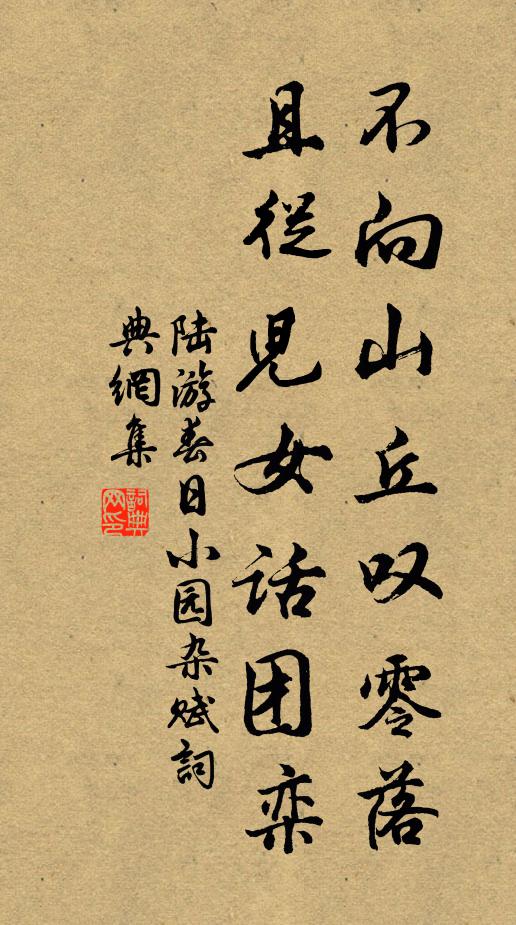 不向山丘叹零落
且從兒女话团栾
陆游春日小园杂赋詞
典網集
詞典網印